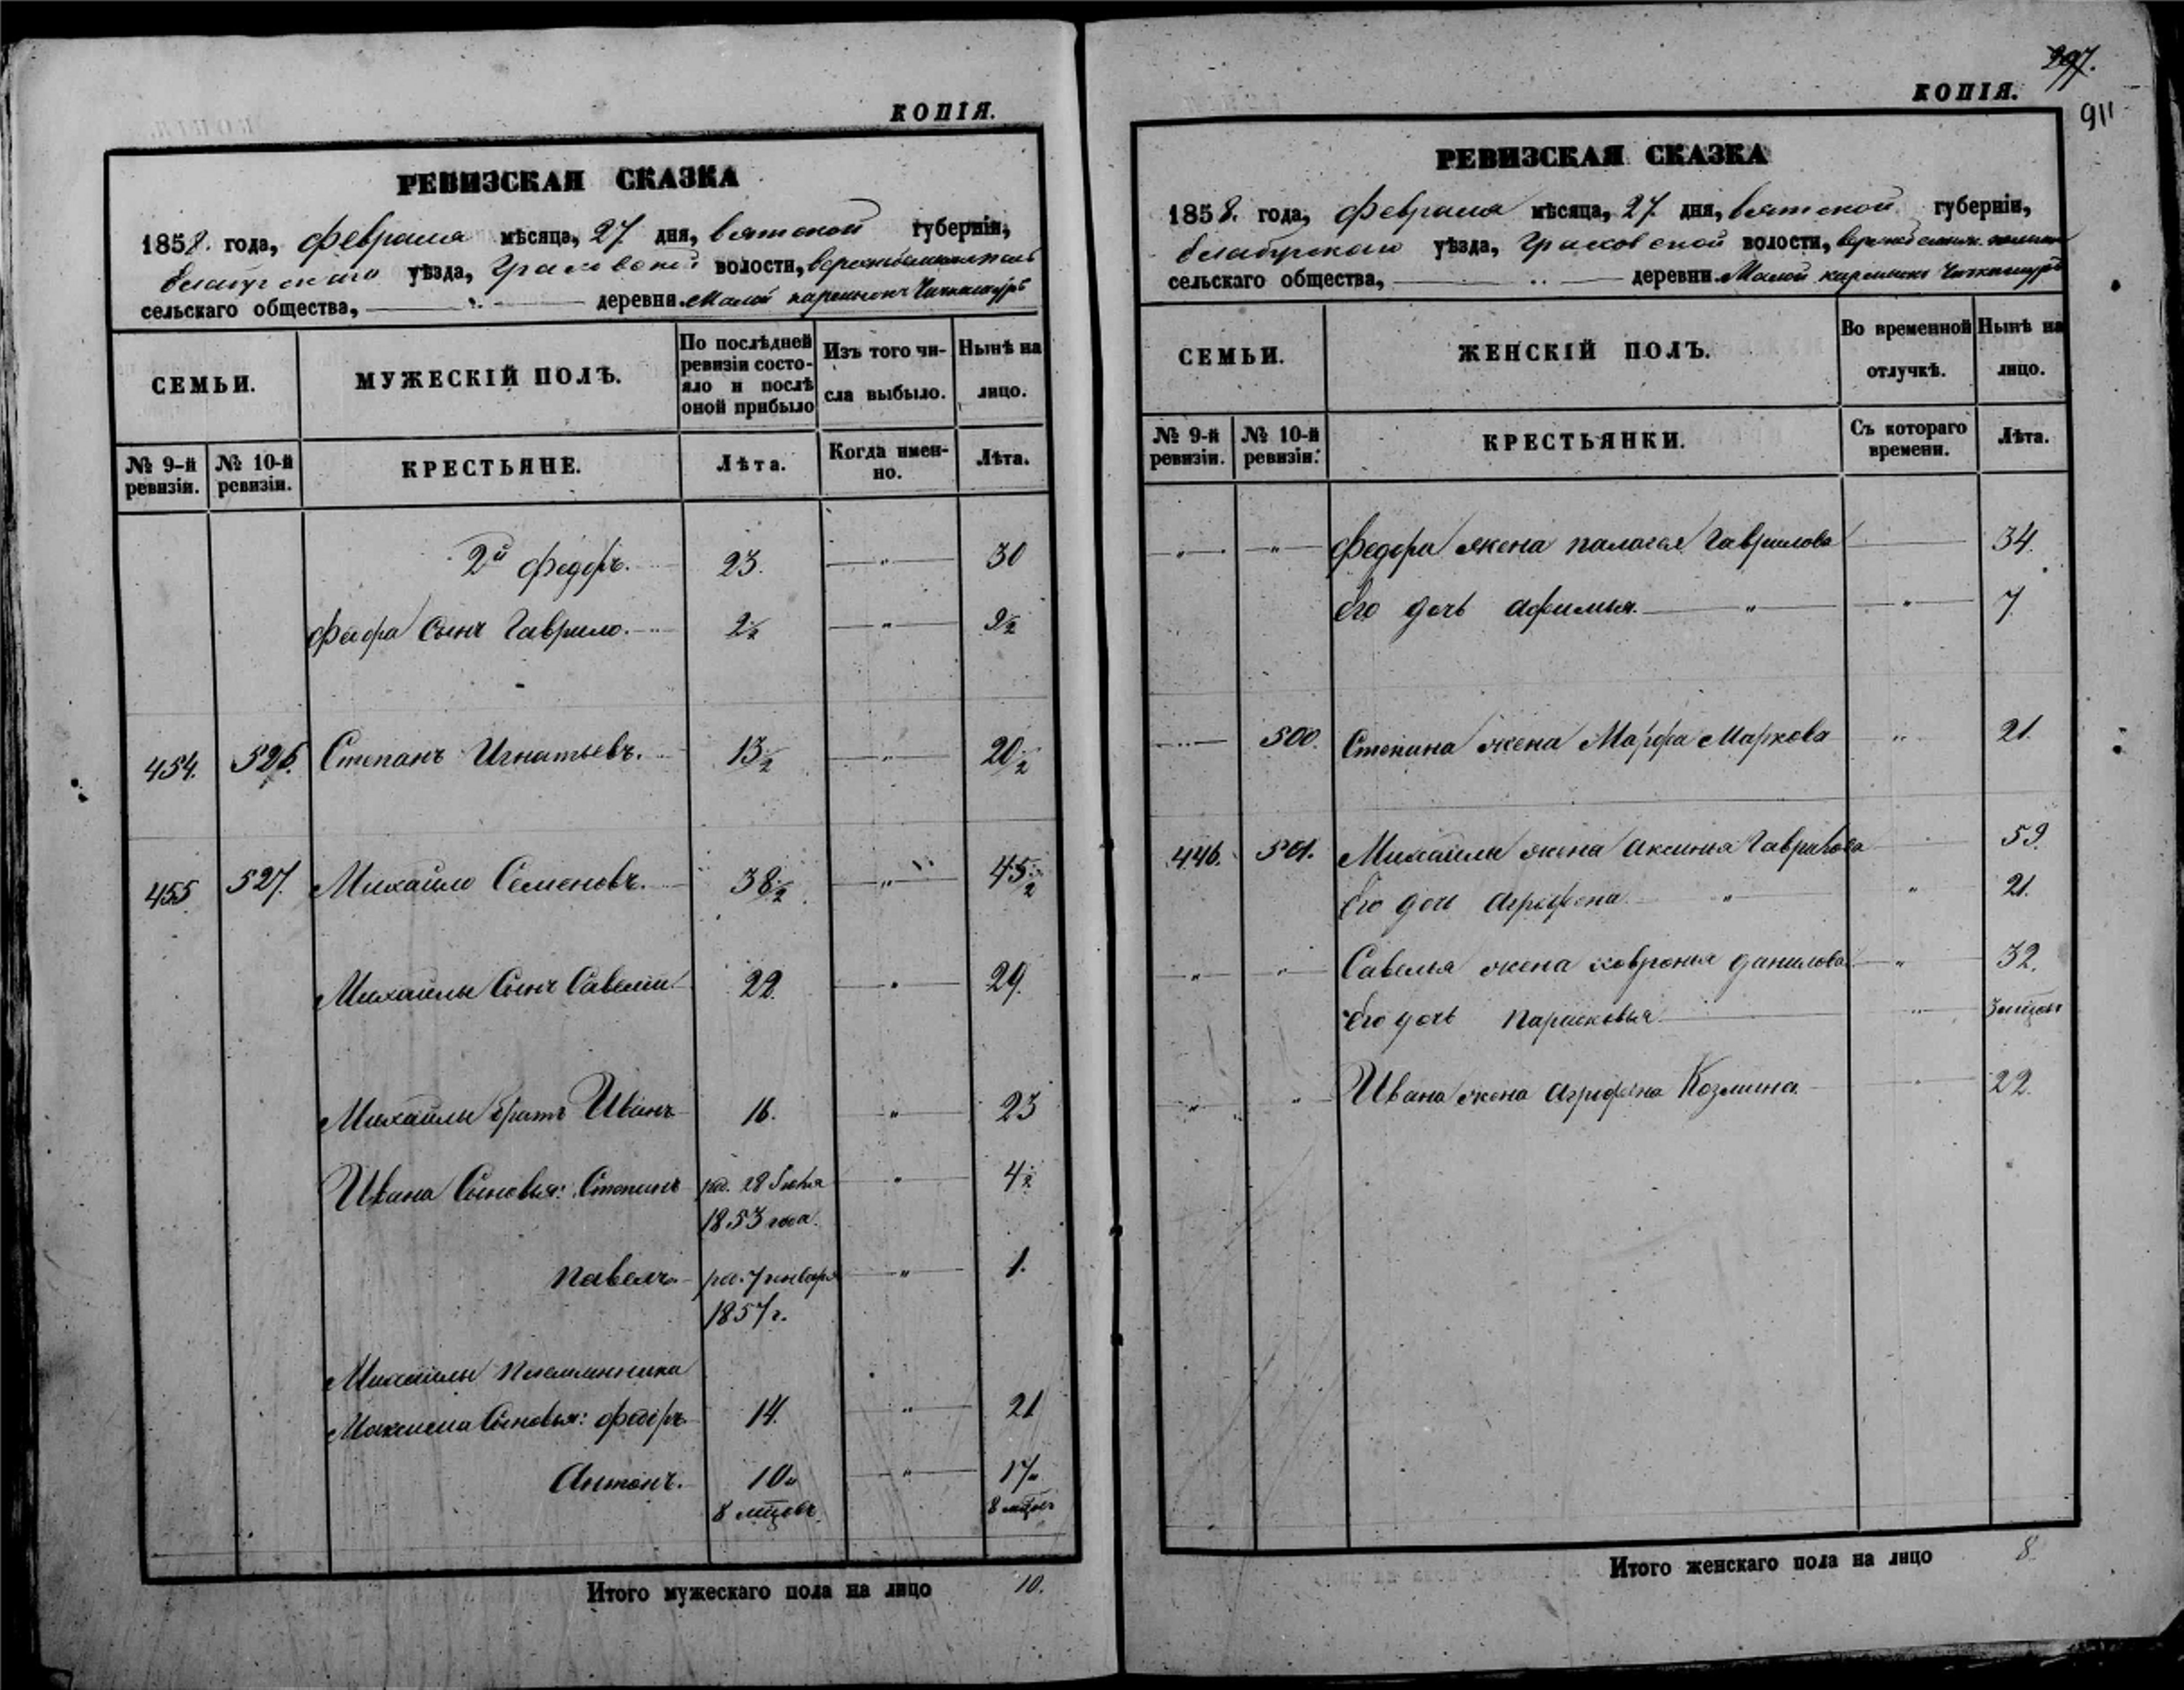 КОПІЯ.
РЕВИЗСКАЯ СКАЗКА
1858. года, февраля мѣсяца, 27 дня, вятской губерніи,
елабугскаго уѣзда, Граховской волости,
сельскаго общества, деревни Малой
СЕМЬИ.
МУЖЕСКІЙ ПОЛЪ.
По послѣдней ревизіи состояло и послѣ оной прибыло
Изъ того числа выбыло.
Нынѣ на лицо.
№ 9-й ревизіи.
№ 10-й ревизіи.
КРЕСТЬЯНЕ.
Лѣта.
Когда именно.
Лѣта.
2й федоръ. 23. " 30
федора Сынъ Гаврило. 2½ " 9½
454. 526. Степанъ Игнатьевъ. 13½ " 20½
455 527. Михайло Семеновъ. 38½ " 45½
Михайлы Сынъ Савелiй 22. " 29.
Михайлы братъ Иванъ 16. " 23
Ивана Сыновья: Степанъ ро. 28 Iюля " 4½
1853 года.
павелъ ро. 7 января " 1.
1857 г.
Михайлы племянника
Максима Сыновья: федоръ 14. " 21
Антонъ. 10 и " 17 и
8 мцовъ. 8 мцовъ
Итого мужескаго пола на лицо 10.
297.
КОПІЯ.
911
РЕВИЗСКАЯ СКАЗКА
1858. года, февраля мѣсяца, 27 дня, вятской губерніи,
елабугскаго уѣзда, Граховской волости,
сельскаго общества, деревни Малой
СЕМЬИ.
ЖЕНСКІЙ ПОЛЪ.
Во временной отлучкѣ.
Нынѣ на лицо.
№ 9-й ревизіи.
№ 10-й ревизіи.
КРЕСТЬЯНКИ.
Съ котораго времени.
Лѣта.
" " федора жена палагея Гаврилова 34.
Его дочь афимья. " " 7
" 500. Степана жена Марфа Маркова " 21.
446. 501. Михайлы жена аксинья Гаврилова 59.
Его дочь агрофена " " 21.
" " Савелья жена ховронья данилова " 32.
Его дочь парасковья " 3 мцовъ
" " Ивана жена агрофена Козмина. " 22.
Итого женскаго пола на лицо 8.